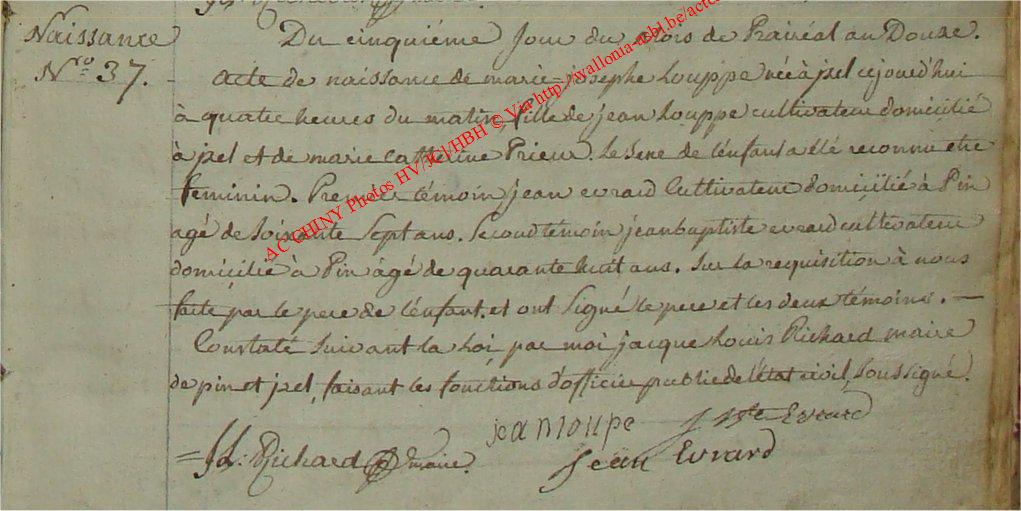 Naissance
N.ro 37.
Du cinquiéme Jour du Mois de Prairéal an Douze.
acte de naissance de marie-josephe Louppe née à jzel cejourd'hui
à quatre heures du matin fille de jean Louppe cultivateur domicilié
à jzel et de marie Catherine Prieur. Le Sexe de l'enfant a élé reconnu etre
feminin. Premier témoin jean evrard Cultivateur domicilié à Pin
agé de Soixante Sept ans. Second témoin jean baptiste evrard cultivateur
domicilié à Pin àgé de quarante huit ans. Sur la requisition à nous
faite par le pere de l'enfant. et ont Signé le pere et les deux témoins. —
Constaté Suivant la Loi par moi jacque Louis Richard maire
de pin et jzel, faisant les fonctions d'officier public de l'état civil, Soussigné.
jean loupe
J Bte Evrard
Richard maire.
Jean Evrard
AC CHINY Photos HV/JCl/HBH © Via http://wallonia-asbl.be/acte